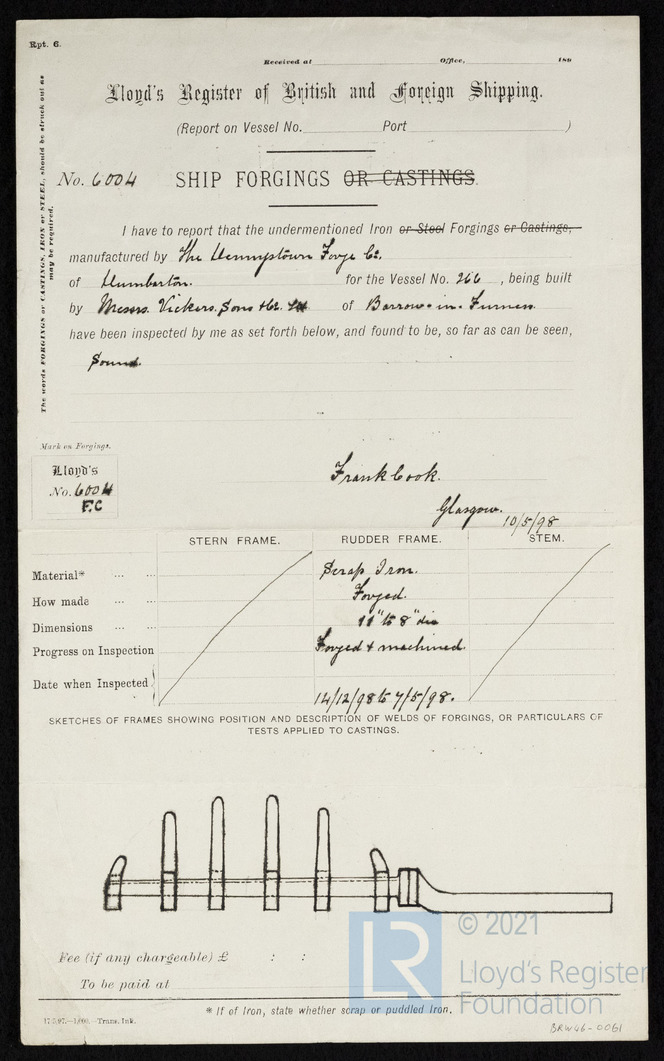 Rpt. 6.
Received at Office, 189
Lloyd's Register of British and Foreign Shipping.
(Report on Vessel No. Port )
No. 6004 SHIP FORGINGS OR CASTINGS.
The words FORGINGS or CASTINGS, IRON or STEEL, should be struck out as
may be required.
I have to report that the undermentioned Iron or Steel Forgings or Castings,
manufactured by The Dennystown Forge Co.
of Dumbarton. for the Vessel No. 266 , being built
by Messrs. Vickers, Sons & Co. Ld of Barrow-in-Furness
have been inspected by me as set forth below, and found to be, so far as can be seen,
Sound.
Mark on Forgings.
Lloyd's
No. 6004
F.C
Frank Cook.
Glasgow. 10/5/98
STERN FRAME. RUDDER FRAME. STEM.
Material* ... ... Scrap Iron.
How made ... ... Forged.
Dimensions ... ... 11" to 8" dia
Progress on Inspection Forged & machined.
Date when Inspected 14/12/98 to 7/5/98.
SKETCHES OF FRAMES SHOWING POSITION AND DESCRIPTION OF WELDS OF FORGINGS, OR PARTICULARS OF
TESTS APPLIED TO CASTINGS.
Fee (if any chargeable) £ : :
To be paid at
* If of Iron, state whether scrap or puddled Iron.
Trans. Ink.
LR
© 2021
Lloyd's Register
Foundation
BRW46-0061